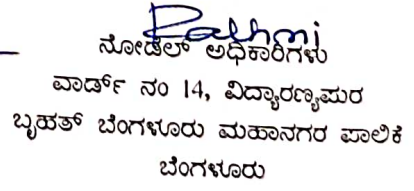 ನೋಡೆಲ್ ಅಧಿಕಾರಿಗಳು
ವಾರ್ಡ್ ನಂ 14, ವಿದ್ಯಾರಣ್ಯಪುರ
ಬೃಹತ್ ಬೆಂಗಳೂರು ಮಹಾನಗರ ಪಾಲಿಕೆ
ಬೆಂಗಳೂರು